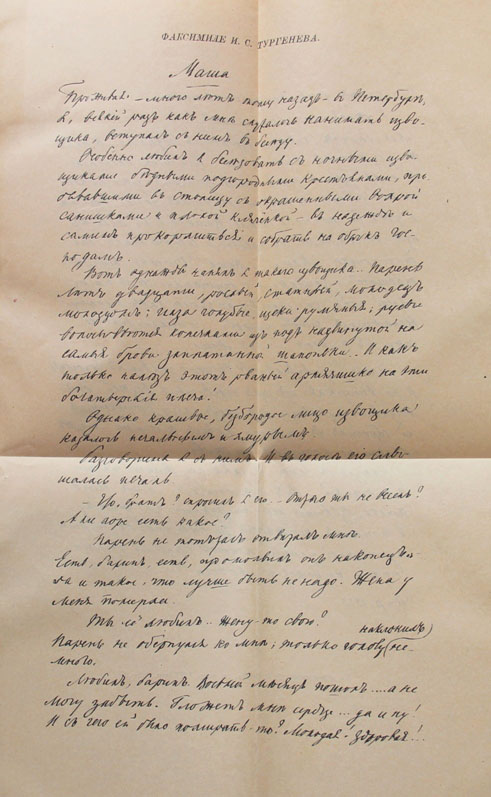 ФАКСИМИЛЕ И. С. ТУРГЕНЕВА.
Маша
Проживая – много лѣтъ тому назадъ – въ Петербургѣ,
я, всякій разъ какъ мнѣ случалось нанимать изво-
щика, вступалъ съ нимъ въ бесѣду.
Особенно любилъ я бесѣдовать съ ночными изво-
щиками, бѣдными подгородными крестьянами, при-
бывавшими въ столицу съ окрашенными вохрой
санишками и плохой клячёнкой – въ надеждѣ и
самимъ прокормиться и собрать на оброкъ гос-
подамъ.
Вотъ однажды нанялъ я такого извощика... Парень
лѣтъ двадцати, рослый, статный, молодецъ
молодцомъ; глаза голубые, щеки румяныя; русые
волосы вьются колечками изъ подъ надвинутой на
самыя брови заплатанной шапоньки. И какъ
только налѣзъ этотъ рваный армячишко на эти
богатырскія плеча!
Однако красивое, безбородое лицо извощика
казалось печальнымъ и хмурымъ.
Разговорился я съ нимъ. И въ голосѣ его слы-
шалась печаль
– Что, братъ? спросилъ я его. – Отчего ты не веселъ?
Али горе есть какое?
Парень не тотчасъ отвѣчалъ мнѣ.
Есть, баринъ, есть, промолвилъ онъ наконецъ. –
Да и такое, что лучше быть не надо. Жена у
меня померла.
Ты её любилъ... жену-то свою?
наклонилъ
Парень не обернулся ко мнѣ; только голову не-
много.
Любилъ, баринъ. Восьмой мѣсяцъ пошолъ.... а не
могу забыть. Гложетъ мнѣ сердце... да и ну!
И съ чего ей было помирать-то? Молодая! здоровая!..